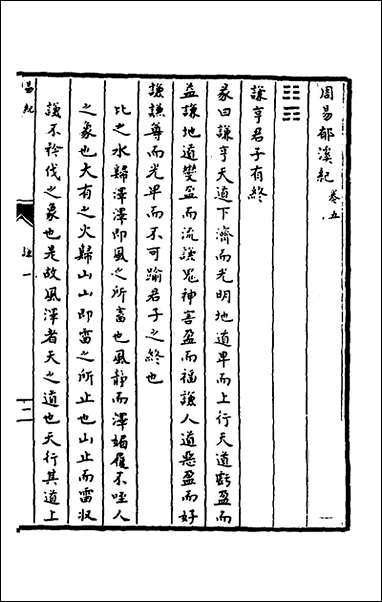 周易郁溪紀 卷五
䷎
謙亨君子有終
彖曰謙亨天道下濟而光明地道卑而上行天道虧盈而
益謙地道變盈而流謙鬼神害盈而福謙人道惡盈而好
謙謙尊而光卑而不可踰君子之終也
比之水歸澤澤即風之所畜也風靜而澤媚履不咥人
之象也大有之火歸山山即雷之所止也山止而雷收
謙不矜伐之象也是故風澤者天之道也天行其道上
易紀
一